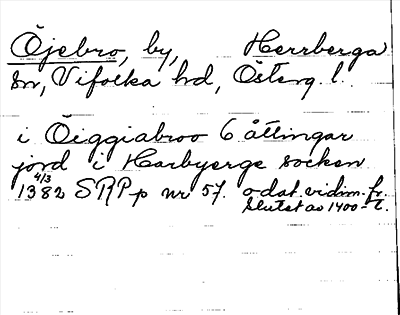 Öjebro, by, Herrberga
sn, Vifolka hd, Österg. l.
i Öiggiabroo 6 åttingar
jord i Harbyerge socken
4/3
1382 SRPp nr 57. odat. vidim. fr.
slutet av 1400-t.